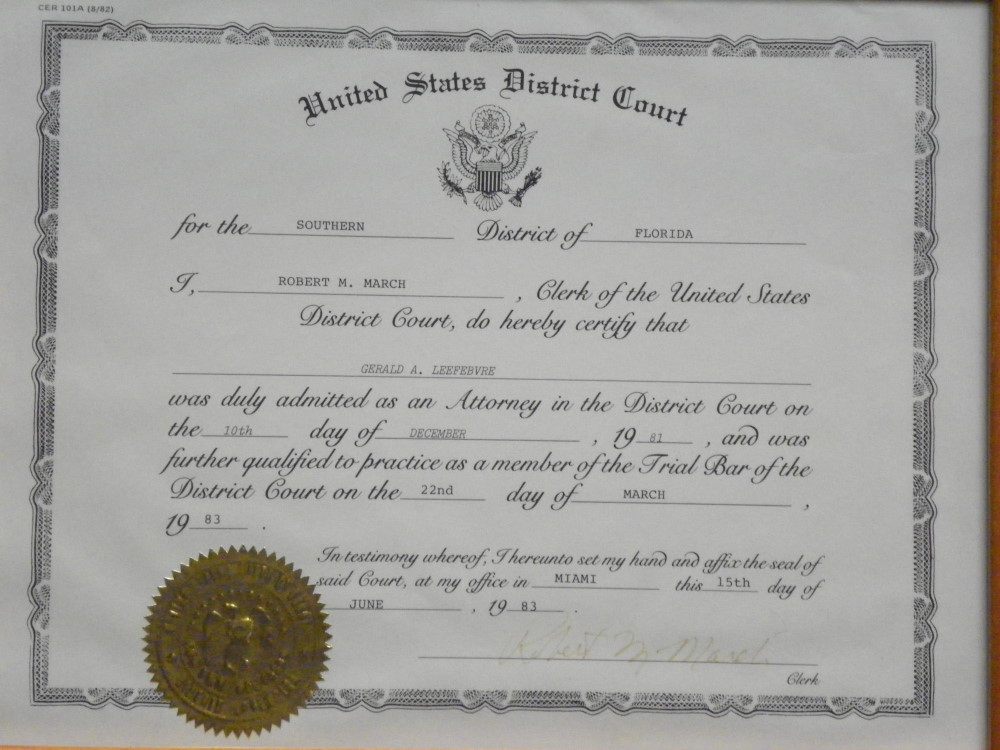 CER 101A (8/82)
United States District Court
for the SOUTHERN District of FLORIDA
I, ROBERT M. MARCH , Clerk of the United States
District Court, do hereby certify that
GERALD A. LEEFEBVRE
was duly admitted as an Attorney in the District Court on
the 10th day of DECEMBER , 19 81 , and was
further qualified to practice as a member of the Trial Bar of the
District Court on the 22nd day of MARCH ,
19 83 .
In testimony whereof, I hereunto set my hand and affix the seal of
said Court, at my office in MIAMI this 15th day of
JUNE , 19 83 .
Robert M. March
Clerk